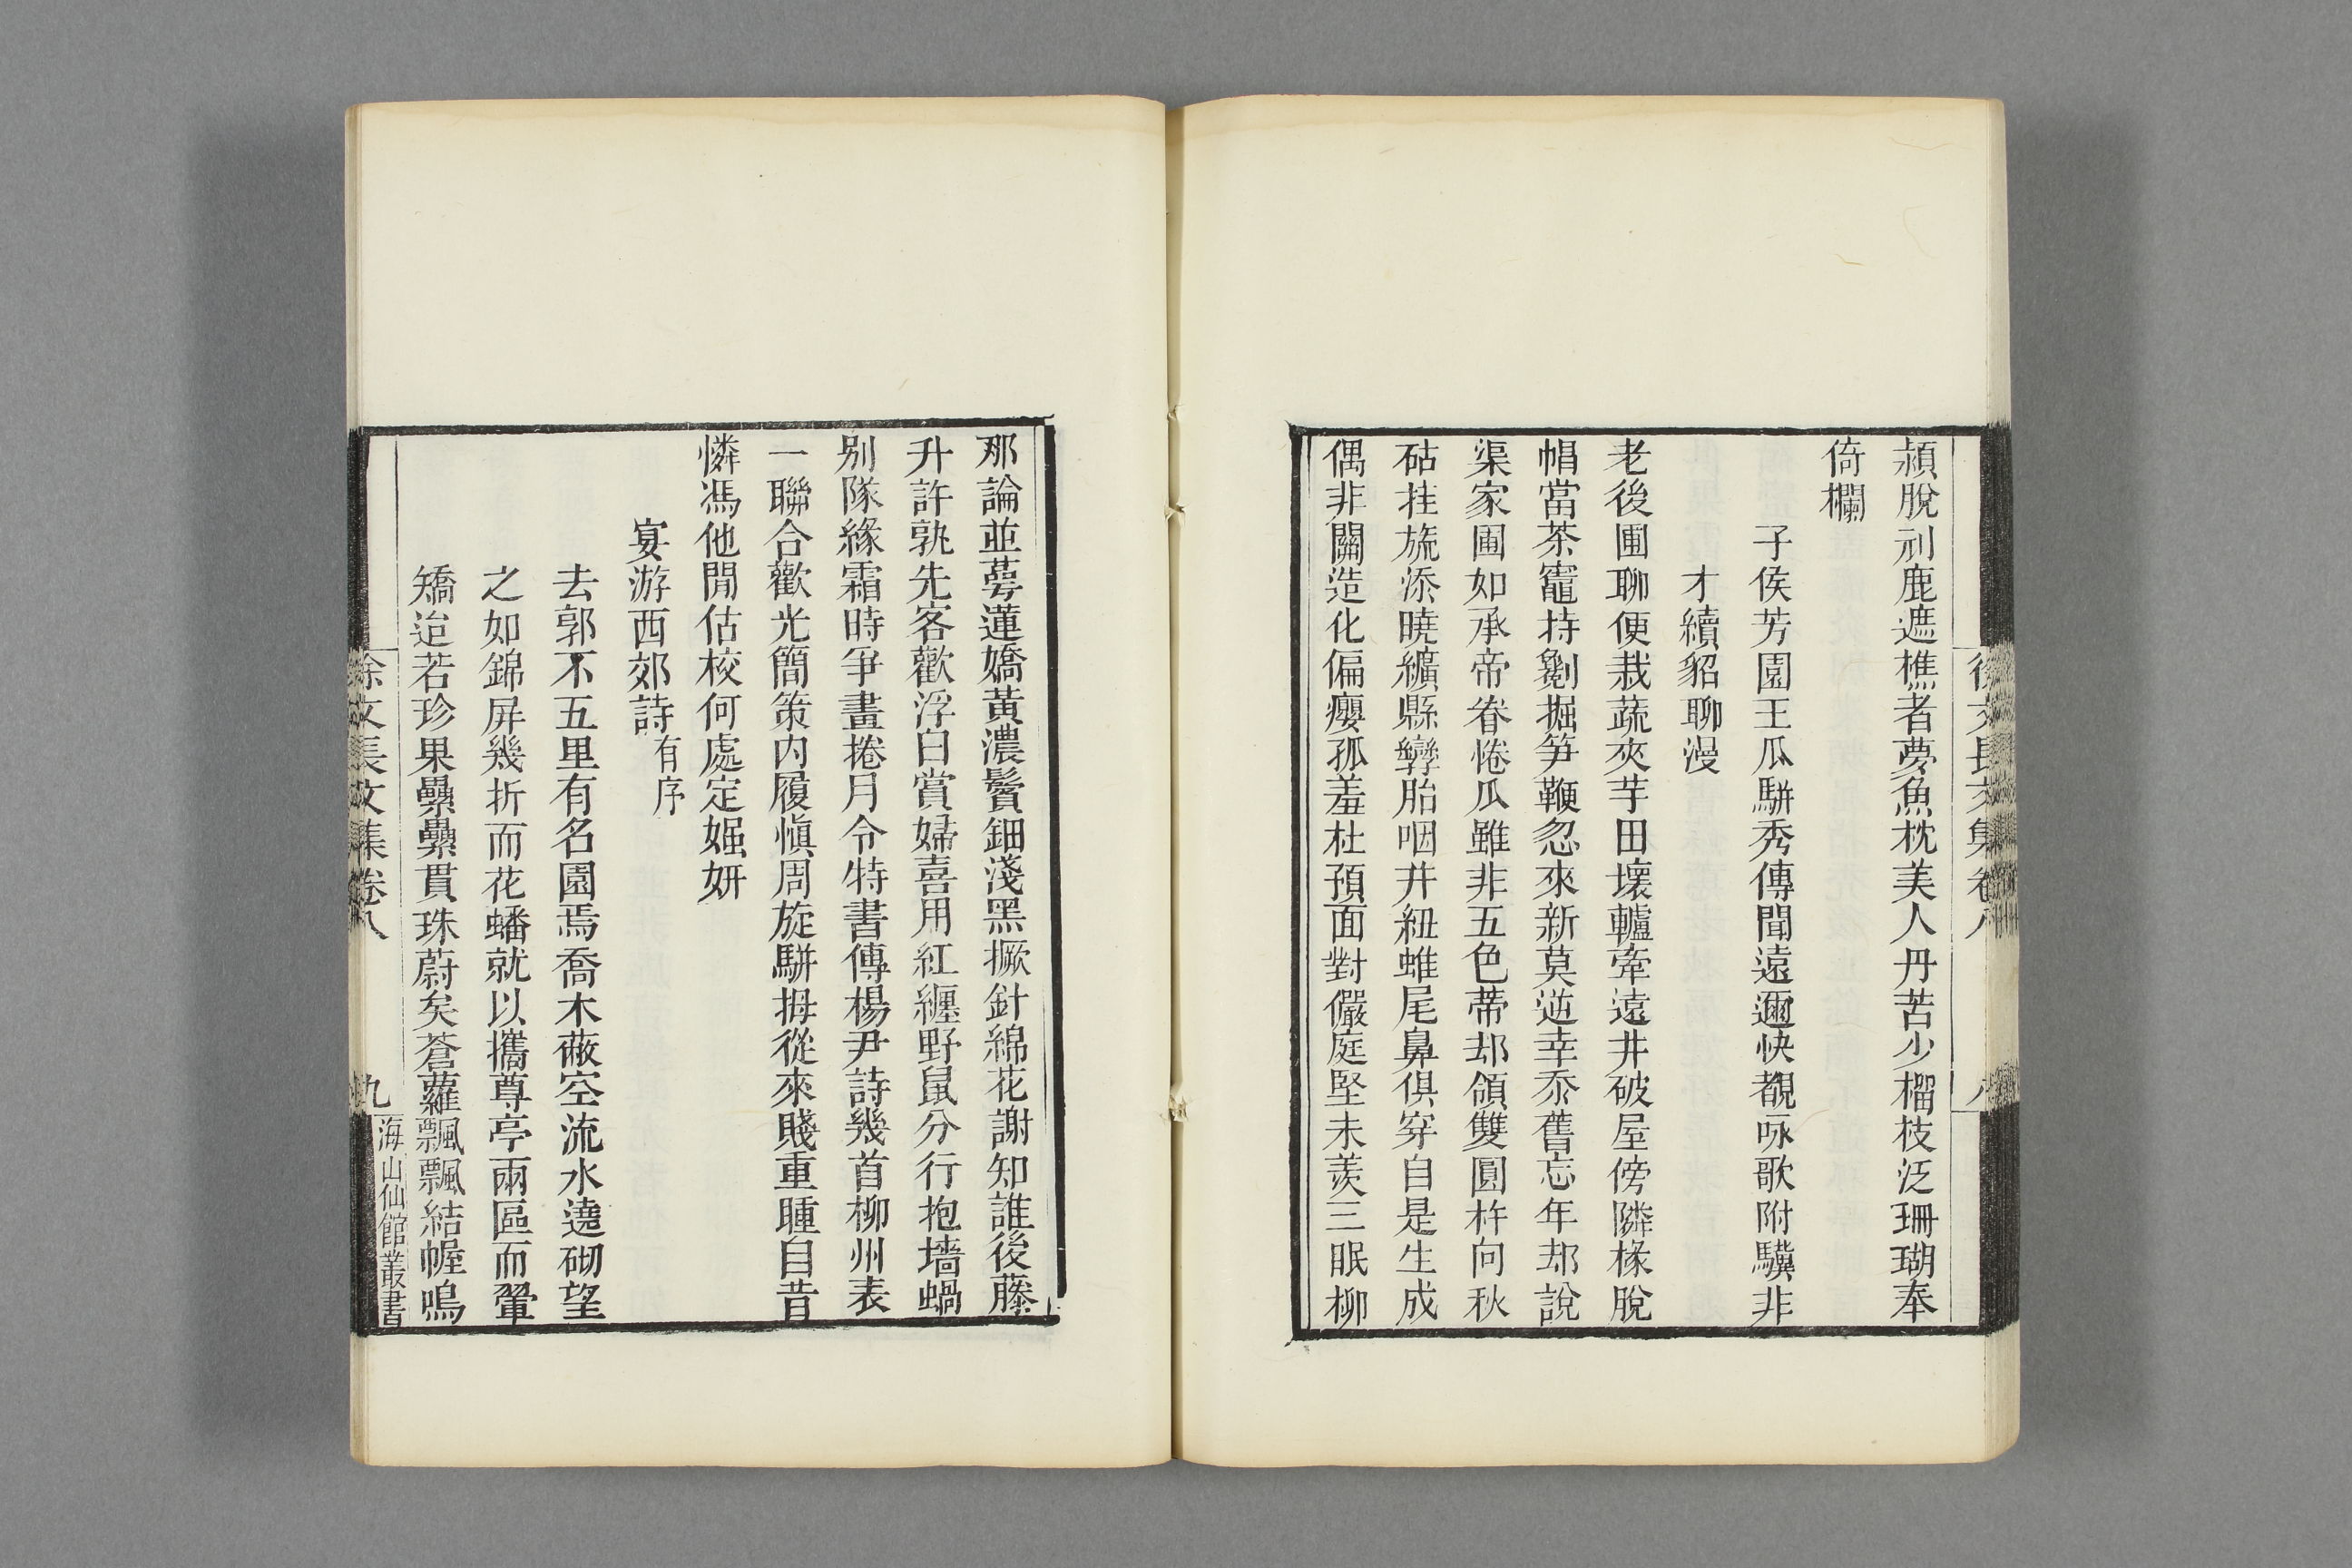 潁脫刓鹿遮樵者夢魚枕美人丹苦少榴枝泛珊瑚奉
倚欄
子侯芳園王瓜駢秀傳聞遠邇快覩咏歌附驥非
才續貂聊漫
老後圃聊便栽蔬夾芋田壞轤牽遠井破屋傍隣椽脫
帽當茶竈持劖掘笋鞭忽來新莫逆幸忝舊忘年却說
渠家圃如承帝眷惓瓜雖非五色蒂却領雙圓杵向秋
砧挂旒添曉纊縣孿胎咽井紐蜼尾鼻俱穿自是生成
偶非關造化偏癭孤羞杜預面對儼庭堅未羨三眠柳
徐文長文集卷八
八
那論並蕚蓮嬌黃濃鬢鈿淺黑撅針綿花謝知誰後藤
升許孰先客歡浮白賞婦喜用紅纏野鼠分行抱墻蝸
别隊緣霜時爭畫捲月令特書傳楊尹詩幾首柳州表
一聯合歡光簡策内履愼周旋駢拇從來賤重瞳自昔
憐馮他閒估校何處定媸妍
宴游西郊詩有序
去郭不五里有名園焉喬木蔽空流水遶砌望
之如錦屏幾折而花蟠就以攜尊亭兩區而翬
矯迨若珍果纍纍貫珠蔚矣蒼蘿飄飄結幄鳴
徐文長文集卷八
九
海山仙館叢書